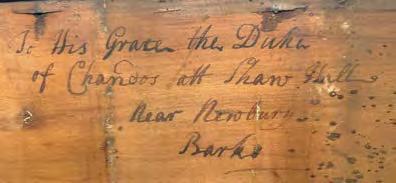 To His Grace the Duke
of Chandos att Shaw Hall
Near Newbury
Barks